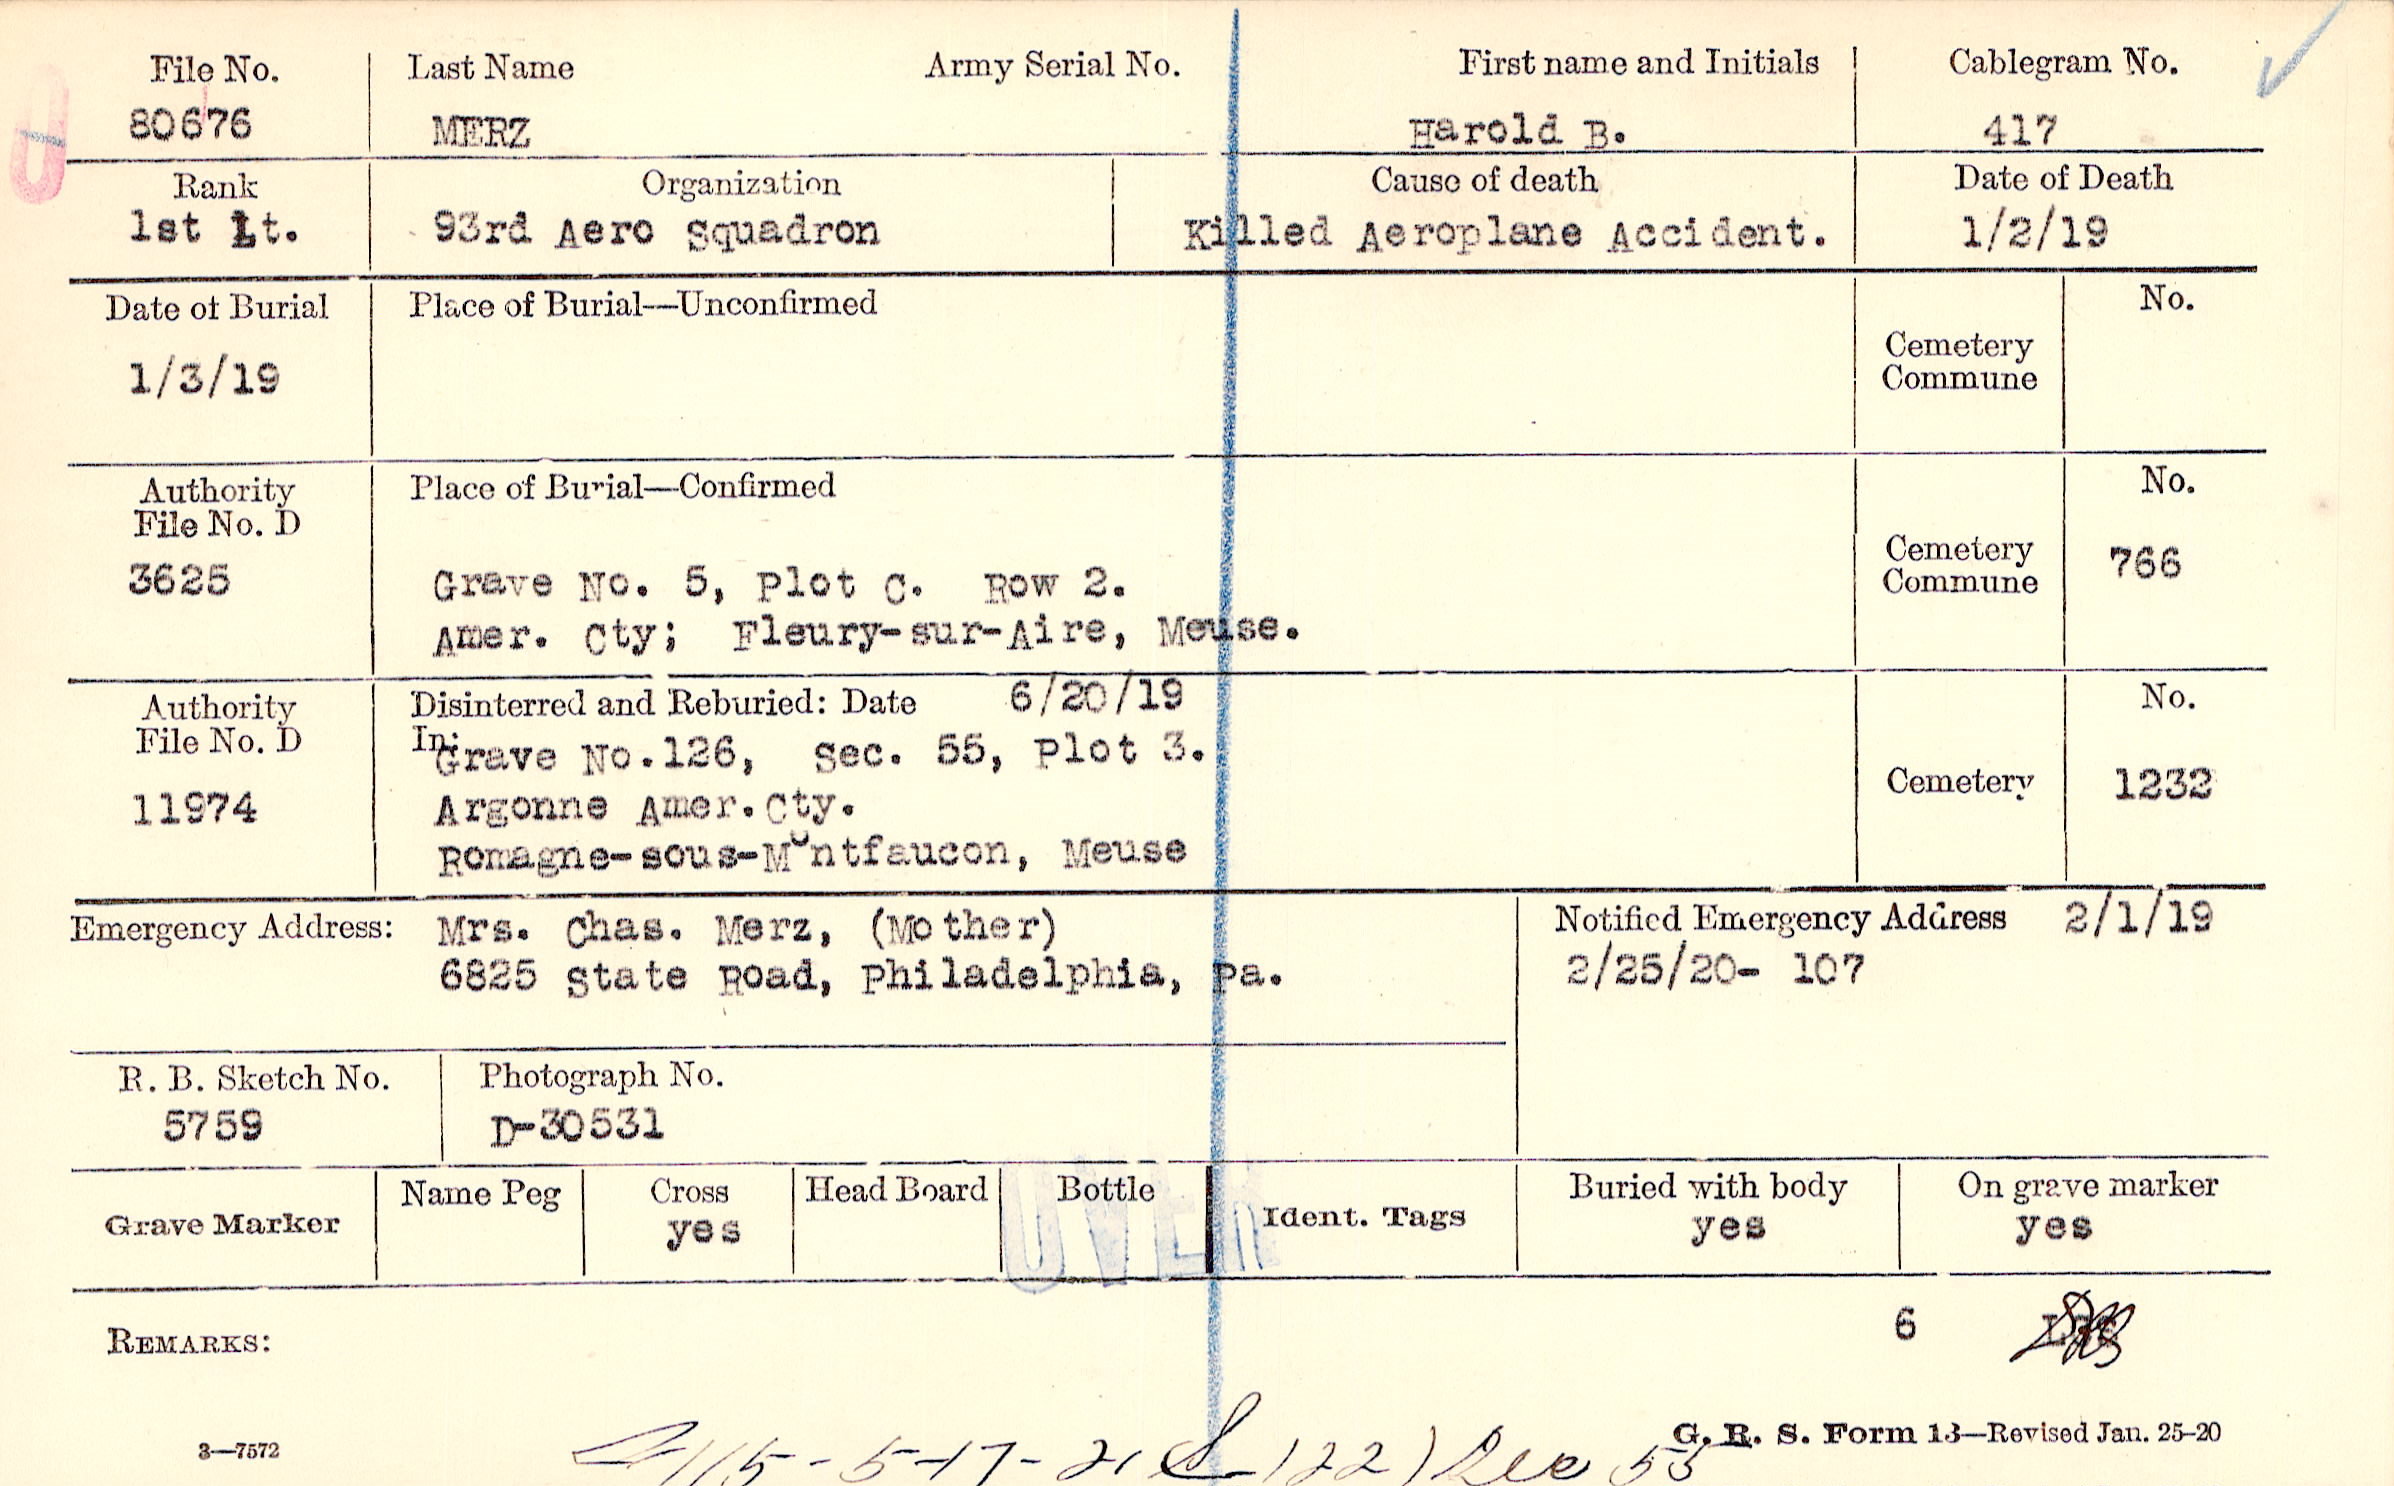 File No. Last Name Army Serial No. First name and Initials Cablegram No.
80676 MERZ Harold B. 417
Rank Organization Cause of death Date of Death
1st Lt. 93rd Aero Squadron Killed Aeroplane Accident. 1/2/19
Date of Burial Place of Burial—Unconfirmed No.
1/3/19
Cemetery
Commune
Authority Place of Burial—Confirmed No.
File No. D
3625 Grave No. 5, Plot C. Row 2.
Amer. Cty; Fleury-sur-Aire, Meuse.
Cemetery 766
Commune
Authority Disinterred and Reburied: Date 6/20/19 No.
File No. D In: Grave No.126, Sec. 55, Plot 3.
11974 Argonne Amer.Cty. Cemetery 1232
Romagne-sous-Montfaucon, Meuse
Emergency Address: Mrs. Chas. Merz, (Mother) Notified Emergency Address 2/1/19
6825 State Road, Philadelphia, Pa. 2/25/20- 107
R. B. Sketch No. Photograph No.
5759 D-30531
Grave Marker Name Peg Cross Head Board Bottle Ident. Tags Buried with body On grave marker
yes yes yes
OVER
REMARKS: 6
3—7572 G. R. S. Form 13—Revised Jan. 25-20
115-5-17-21 122) 55